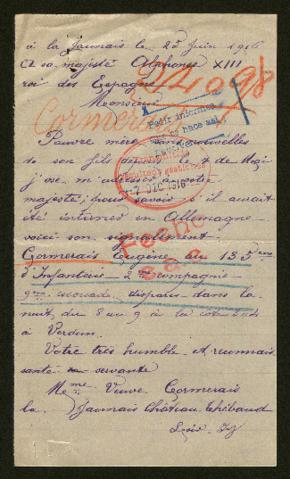 à la Jaunais le 25 juin 1916
à sa majesté Alphonse XIII
roi des Espagne
24098
Monsieur
Cormerais
Pedir informes
Pauvre mère sans nouvelles
de son fils depuis le 7 de Mai
j'ose m'adresser à votre
majesté pour savoir s'il aurait
7 DIC 1916
été interné en Allemagne
voici son signalement
Fecho
Cormerais Eugène du 135ème
d'Infanterie 2me compagnie
9me escouade, disparu dans la
nuit du 8 au 9 à la cote
à Verdun.
Votre très humble et reconnais
sante servante
Mme Veuve Cormerais
la Jaunais Château Thébaud
Loire Inf